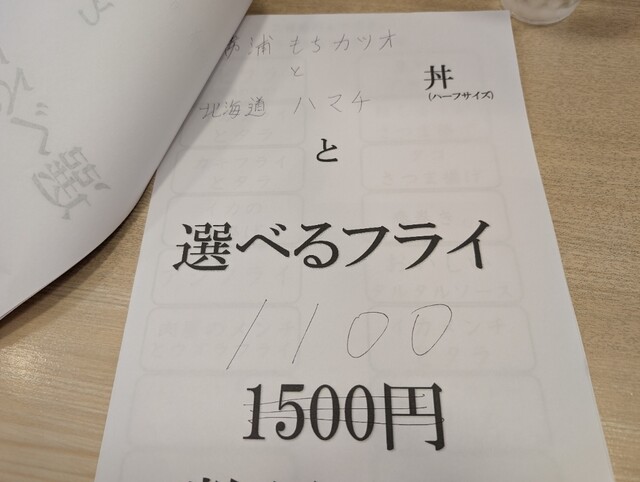 浦 もちカツオ
と
北海道 ハマチ
丼
(ハーフサイズ)
と
選べるフライ
1100
1500円